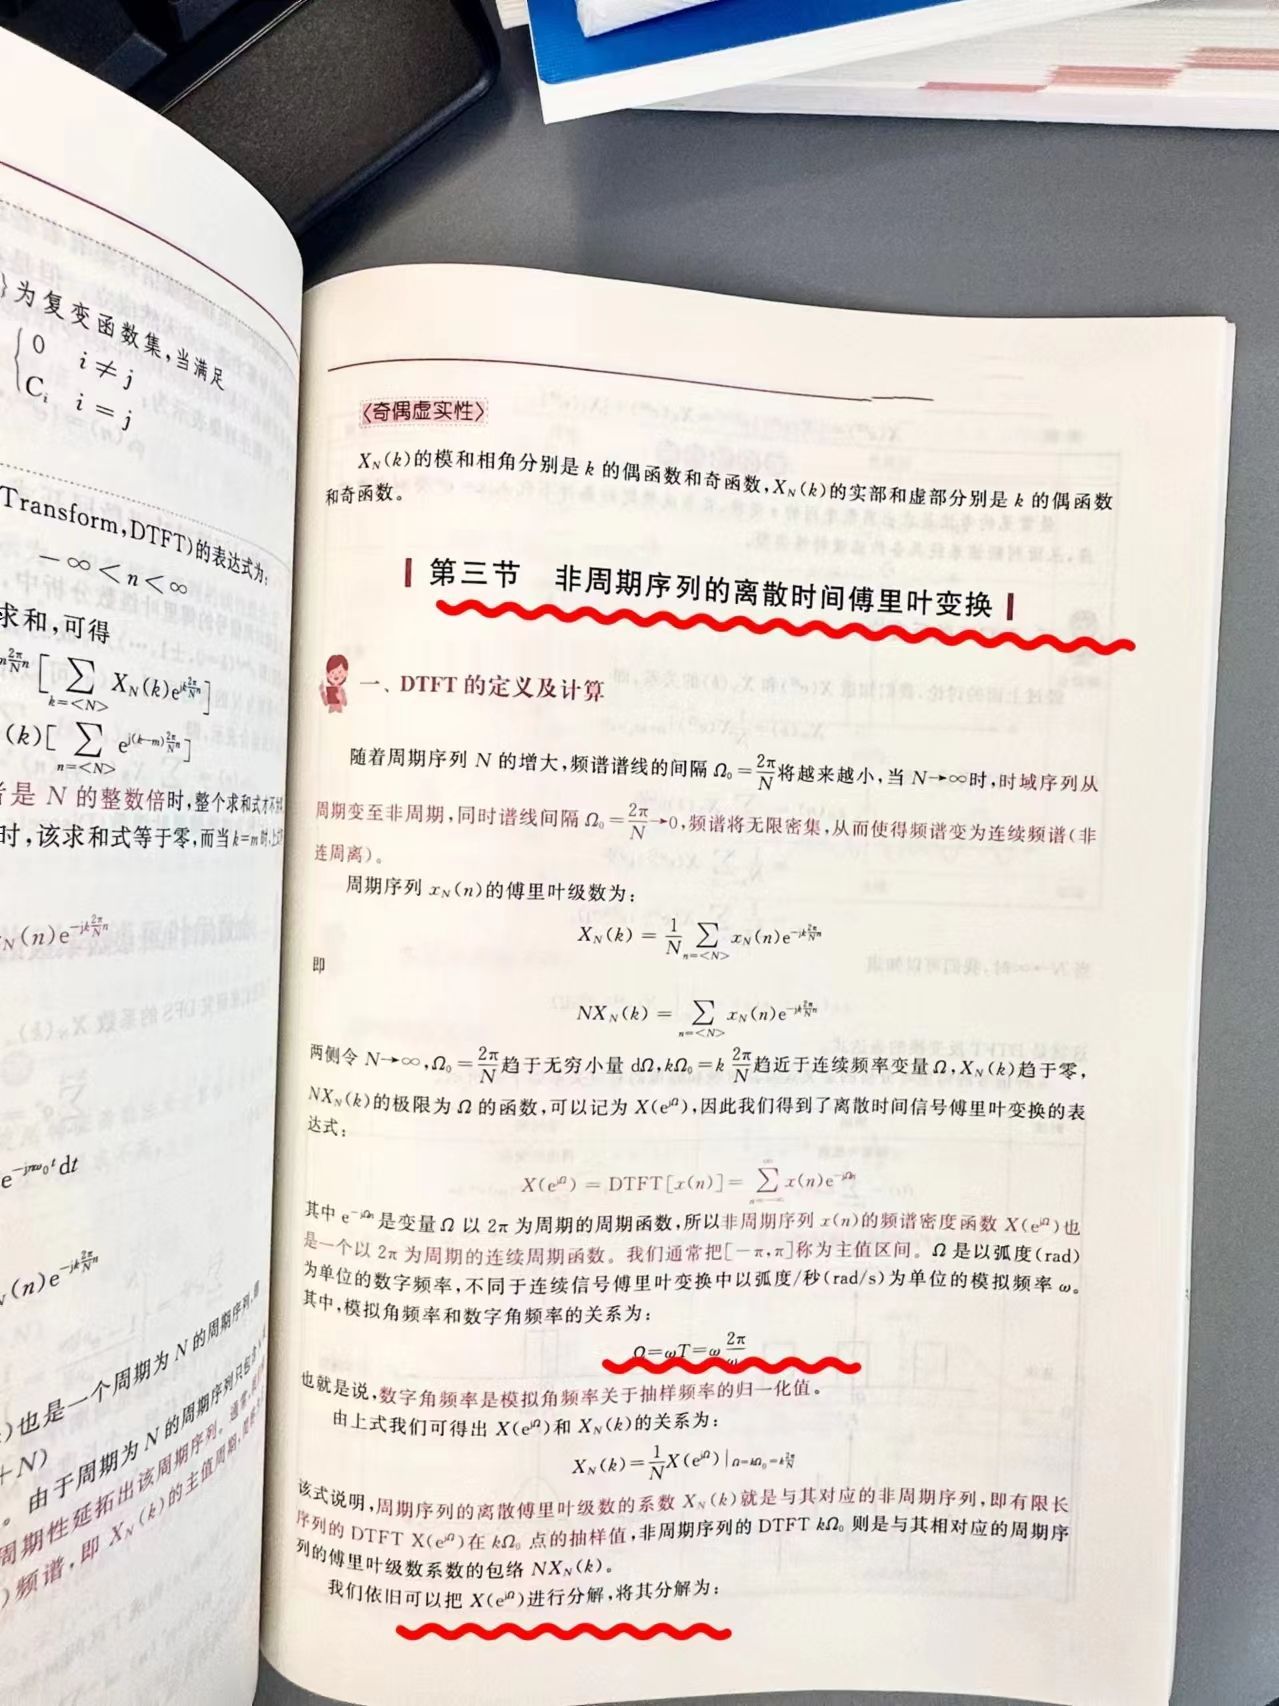 为复变函数集,当满足
0 i≠j
Cᵢ i=j
Transform,DTFT)的表达式为:
-∞<n<∞
求和,可得
[∑ X_N(k)e^{jk(2π/N)n}]
k=<N>
(k)[∑ e^{j(k-m)(2π/N)n}]
n=<N>
是 N 的整数倍时,整个求和式才不
时,该求和式等于零,而当 k=m 时,
_N(n)e^{-jk(2π/N)n}
e^{-jnω₀t}dt
(n)e^{-jk(2π/N)n}
)也是一个周期为 N 的周期序列,
+N)
。由于周期为 N 的周期序列只
周期性延拓出该周期序列。通常,
)频谱,即 X_N(k)的主值周期,
〈奇偶虚实性〉
X_N(k)的模和相角分别是 k 的偶函数和奇函数,X_N(k)的实部和虚部分别是 k 的偶函数
和奇函数。
第三节 非周期序列的离散时间傅里叶变换
一、DTFT 的定义及计算
随着周期序列 N 的增大,频谱谱线的间隔 Ω₀=2π/N 将越来越小,当 N→∞时,时域序列从
周期变至非周期,同时谱线间隔 Ω₀=2π/N→0,频谱将无限密集,从而使得频谱变为连续频谱(非
连周离)。
周期序列 x_N(n)的傅里叶级数为:
X_N(k)=1/N ∑_{n=<N>} x_N(n)e^{-jk(2π/N)n}
即
NX_N(k)=∑_{n=<N>} x_N(n)e^{-jk(2π/N)n}
两侧令 N→∞,Ω₀=2π/N 趋于无穷小量 dΩ,kΩ₀=k 2π/N 趋近于连续频率变量 Ω,X_N(k)趋于零,
NX_N(k)的极限为 Ω 的函数,可以记为 X(e^{jΩ}),因此我们得到了离散时间信号傅里叶变换的表
达式:
X(e^{jΩ})=DTFT[x(n)]=∑_{n=-∞}^{∞} x(n)e^{-jΩn}
其中 e^{-jΩn}是变量 Ω 以 2π 为周期的周期函数,所以非周期序列 x(n)的频谱密度函数 X(e^{jΩ})也
是一个以 2π 为周期的连续周期函数。我们通常把[-π,π]称为主值区间。Ω 是以弧度(rad)
为单位的数字频率,不同于连续信号傅里叶变换中以弧度/秒(rad/s)为单位的模拟频率 ω。
其中,模拟角频率和数字角频率的关系为:
Ω=ωT=ω 2π/ω
也就是说,数字角频率是模拟角频率关于抽样频率的归一化值。
由上式我们可得出 X(e^{jΩ})和 X_N(k)的关系为:
X_N(k)=1/N X(e^{jΩ})|_{Ω=kΩ₀=k 2π/N}
该式说明,周期序列的离散傅里叶级数的系数 X_N(k)就是与其对应的非周期序列,即有限长
序列的 DTFT X(e^{jΩ})在 kΩ₀ 点的抽样值,非周期序列的 DTFT kΩ₀ 则是与其相对应的周期序
列的傅里叶级数系数的包络 NX_N(k)。
我们依旧可以把 X(e^{jΩ})进行分解,将其分解为: